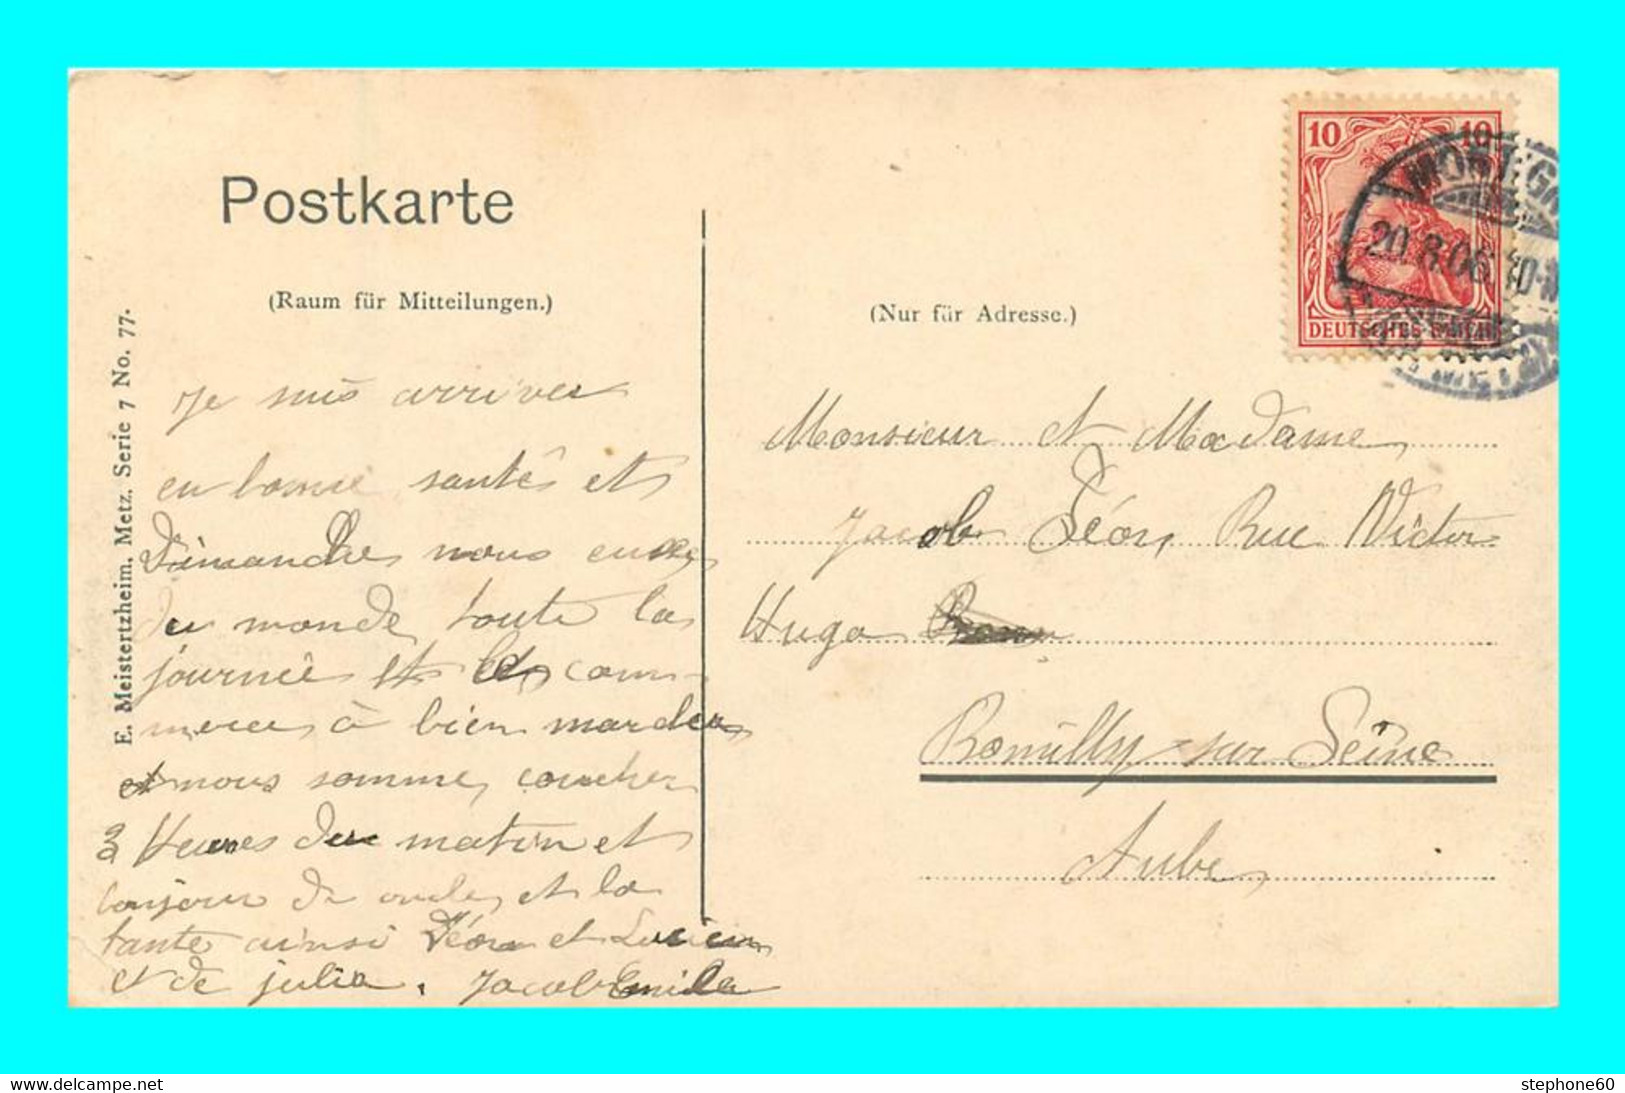 Postkarte
(Raum für Mitteilungen.)
(Nur für Adresse.)
E. Meistertzheim, Metz. Serie 7 No. 77.
10 10
DEUTSCHES REICH
20.8.06.
Je suis arriver
en bonne santé et
Dimanche nous
du monde toute la
journée et com-
merce à bien marcher
et nous somme coucher
3 Heures du matin et
bonjour de oncle et la
tante ainsi Léon et Lucien
et de julia. Jacob Emile
Monsieur et Madame
Jacob Léon, Rue Victor
Hugo
Romilly sur Seine
Aube
delcampe.net
stephone60